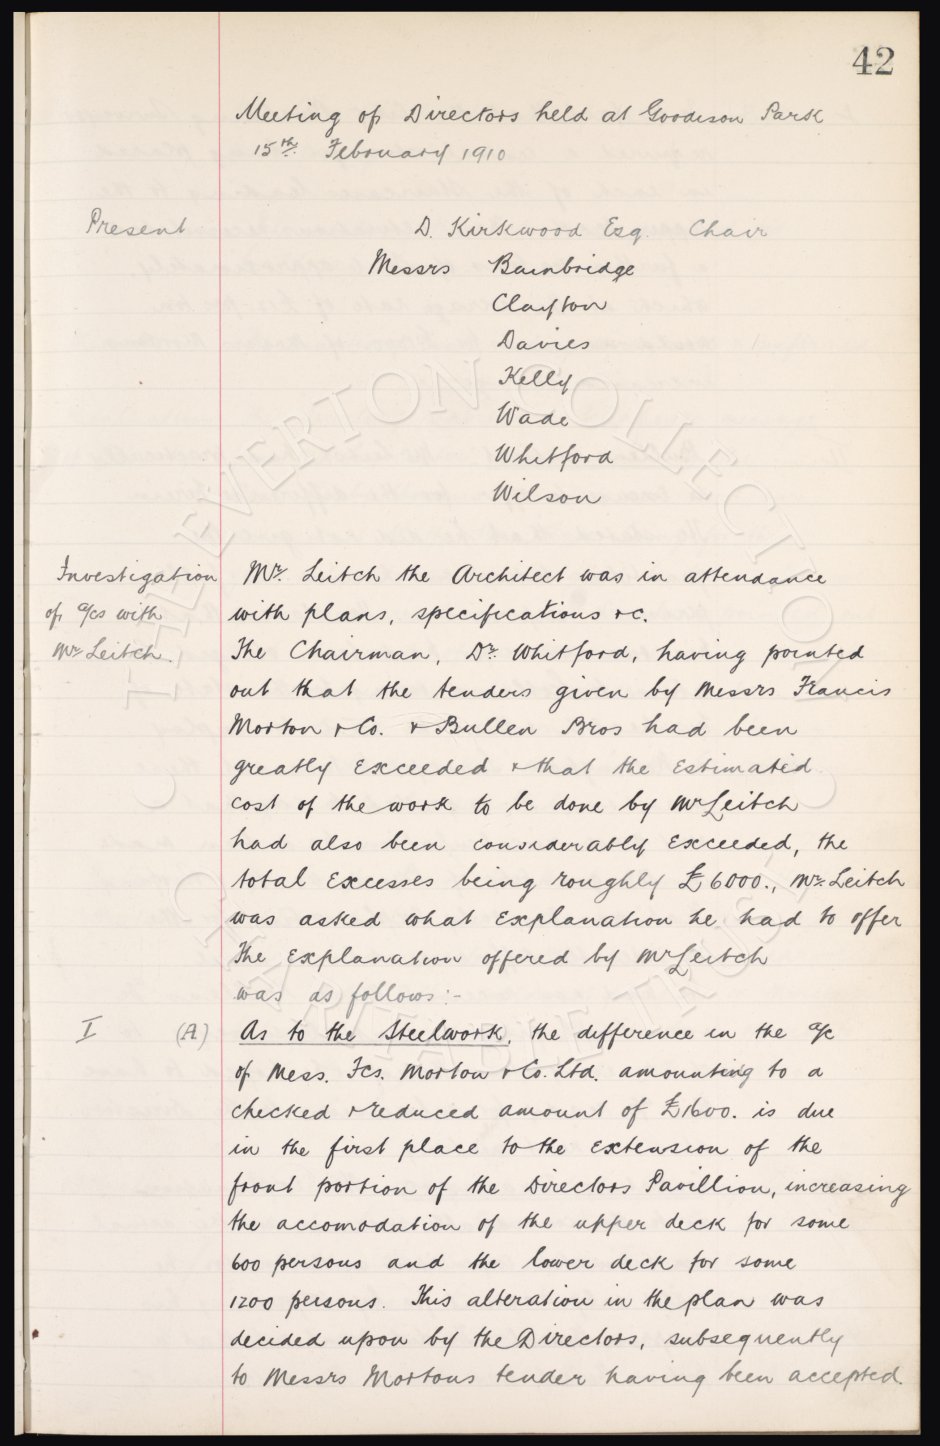 42
Meeting of Directors held at Goodison Park
15th. February 1910
Present D. Kirkwood Esq. Chair
Messrs Bainbridge
Clayton
Davies
Kelly
Wade
Whitford
Wilson
Investigation Mr. Leitch the Architect was in attendance
of a/cs with with plans, specifications &c.
Mr Leitch. The Chairman, Dr. Whitford, having pointed
out that the tenders given by Messrs Francis
Morton & Co. & Bullen Bros had been
greatly Exceeded & that the Estimated
cost of the work to be done by Mr Leitch
had also been considerably Exceeded, the
total Excesses being roughly £6000., Mr. Leitch
was asked what Explanation he had to offer
The Explanation offered by Mr Leitch
was as follows:-
I (A) As to the Steelwork, the difference in the a/c
of Mess. Fcs. Morton & Co. Ltd. amounting to a
checked & reduced amount of £1600. is due
in the first place to the Extension of the
front portion of the Directors Pavillion, increasing
the accomodation of the upper deck for some
600 persons and the lower deck for some
1200 persons. This alteration in the plan was
decided upon by the Directors, subsequently
to Messrs Mortons tender having been accepted.
THE EVERTON COLLECTION
CHARITABLE TRUST